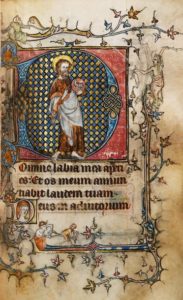 Domine labia mea aperi
es: Et os meum annun
tiabit laudem tuam
Deus in adiutorium